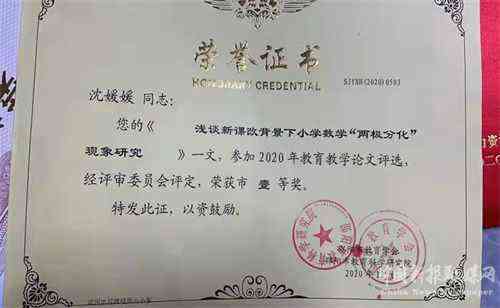 荣誉证书
HONORARY CREDENTIAL
SJYXH(2020)0503
沈媛媛 同志:
您的《 浅谈新课改背景下小学数学“两极分化”
现象研究 》一文,参加2020年教育教学论文评选,
经评审委员会评定,荣获市 壹 等奖。
特发此证,以资鼓励。
教育学会
教育科学研究院